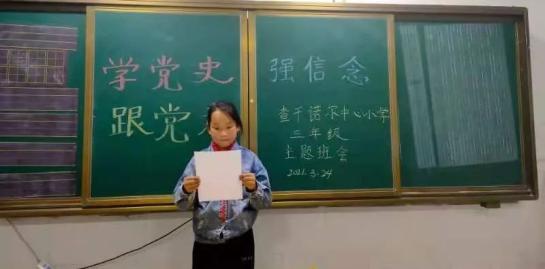 学党史
强信念
跟党
查干诺尔中心小学
三年级
主题班会
2021.3.24